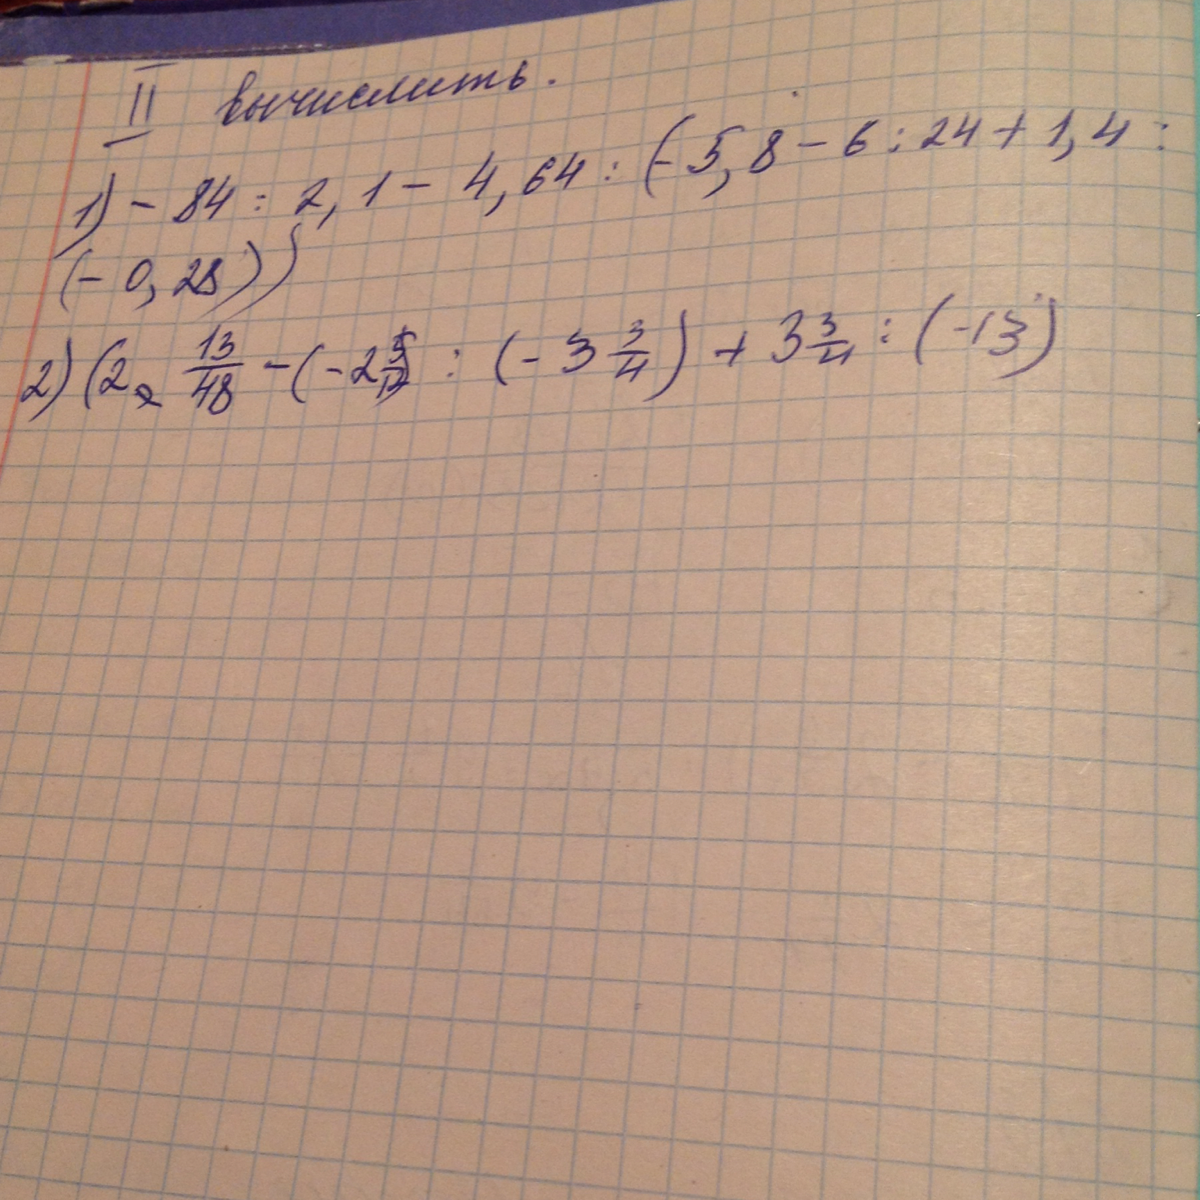 II вычислить.
1) - 84 : 2,1 - 4,64 : (- 5,8 - 6 : 24 + 1,4 :
(- 0,28))
2) (2 13/48 - (- 2 5/12 : (- 3 3/4) + 3 3/4 : (-13)